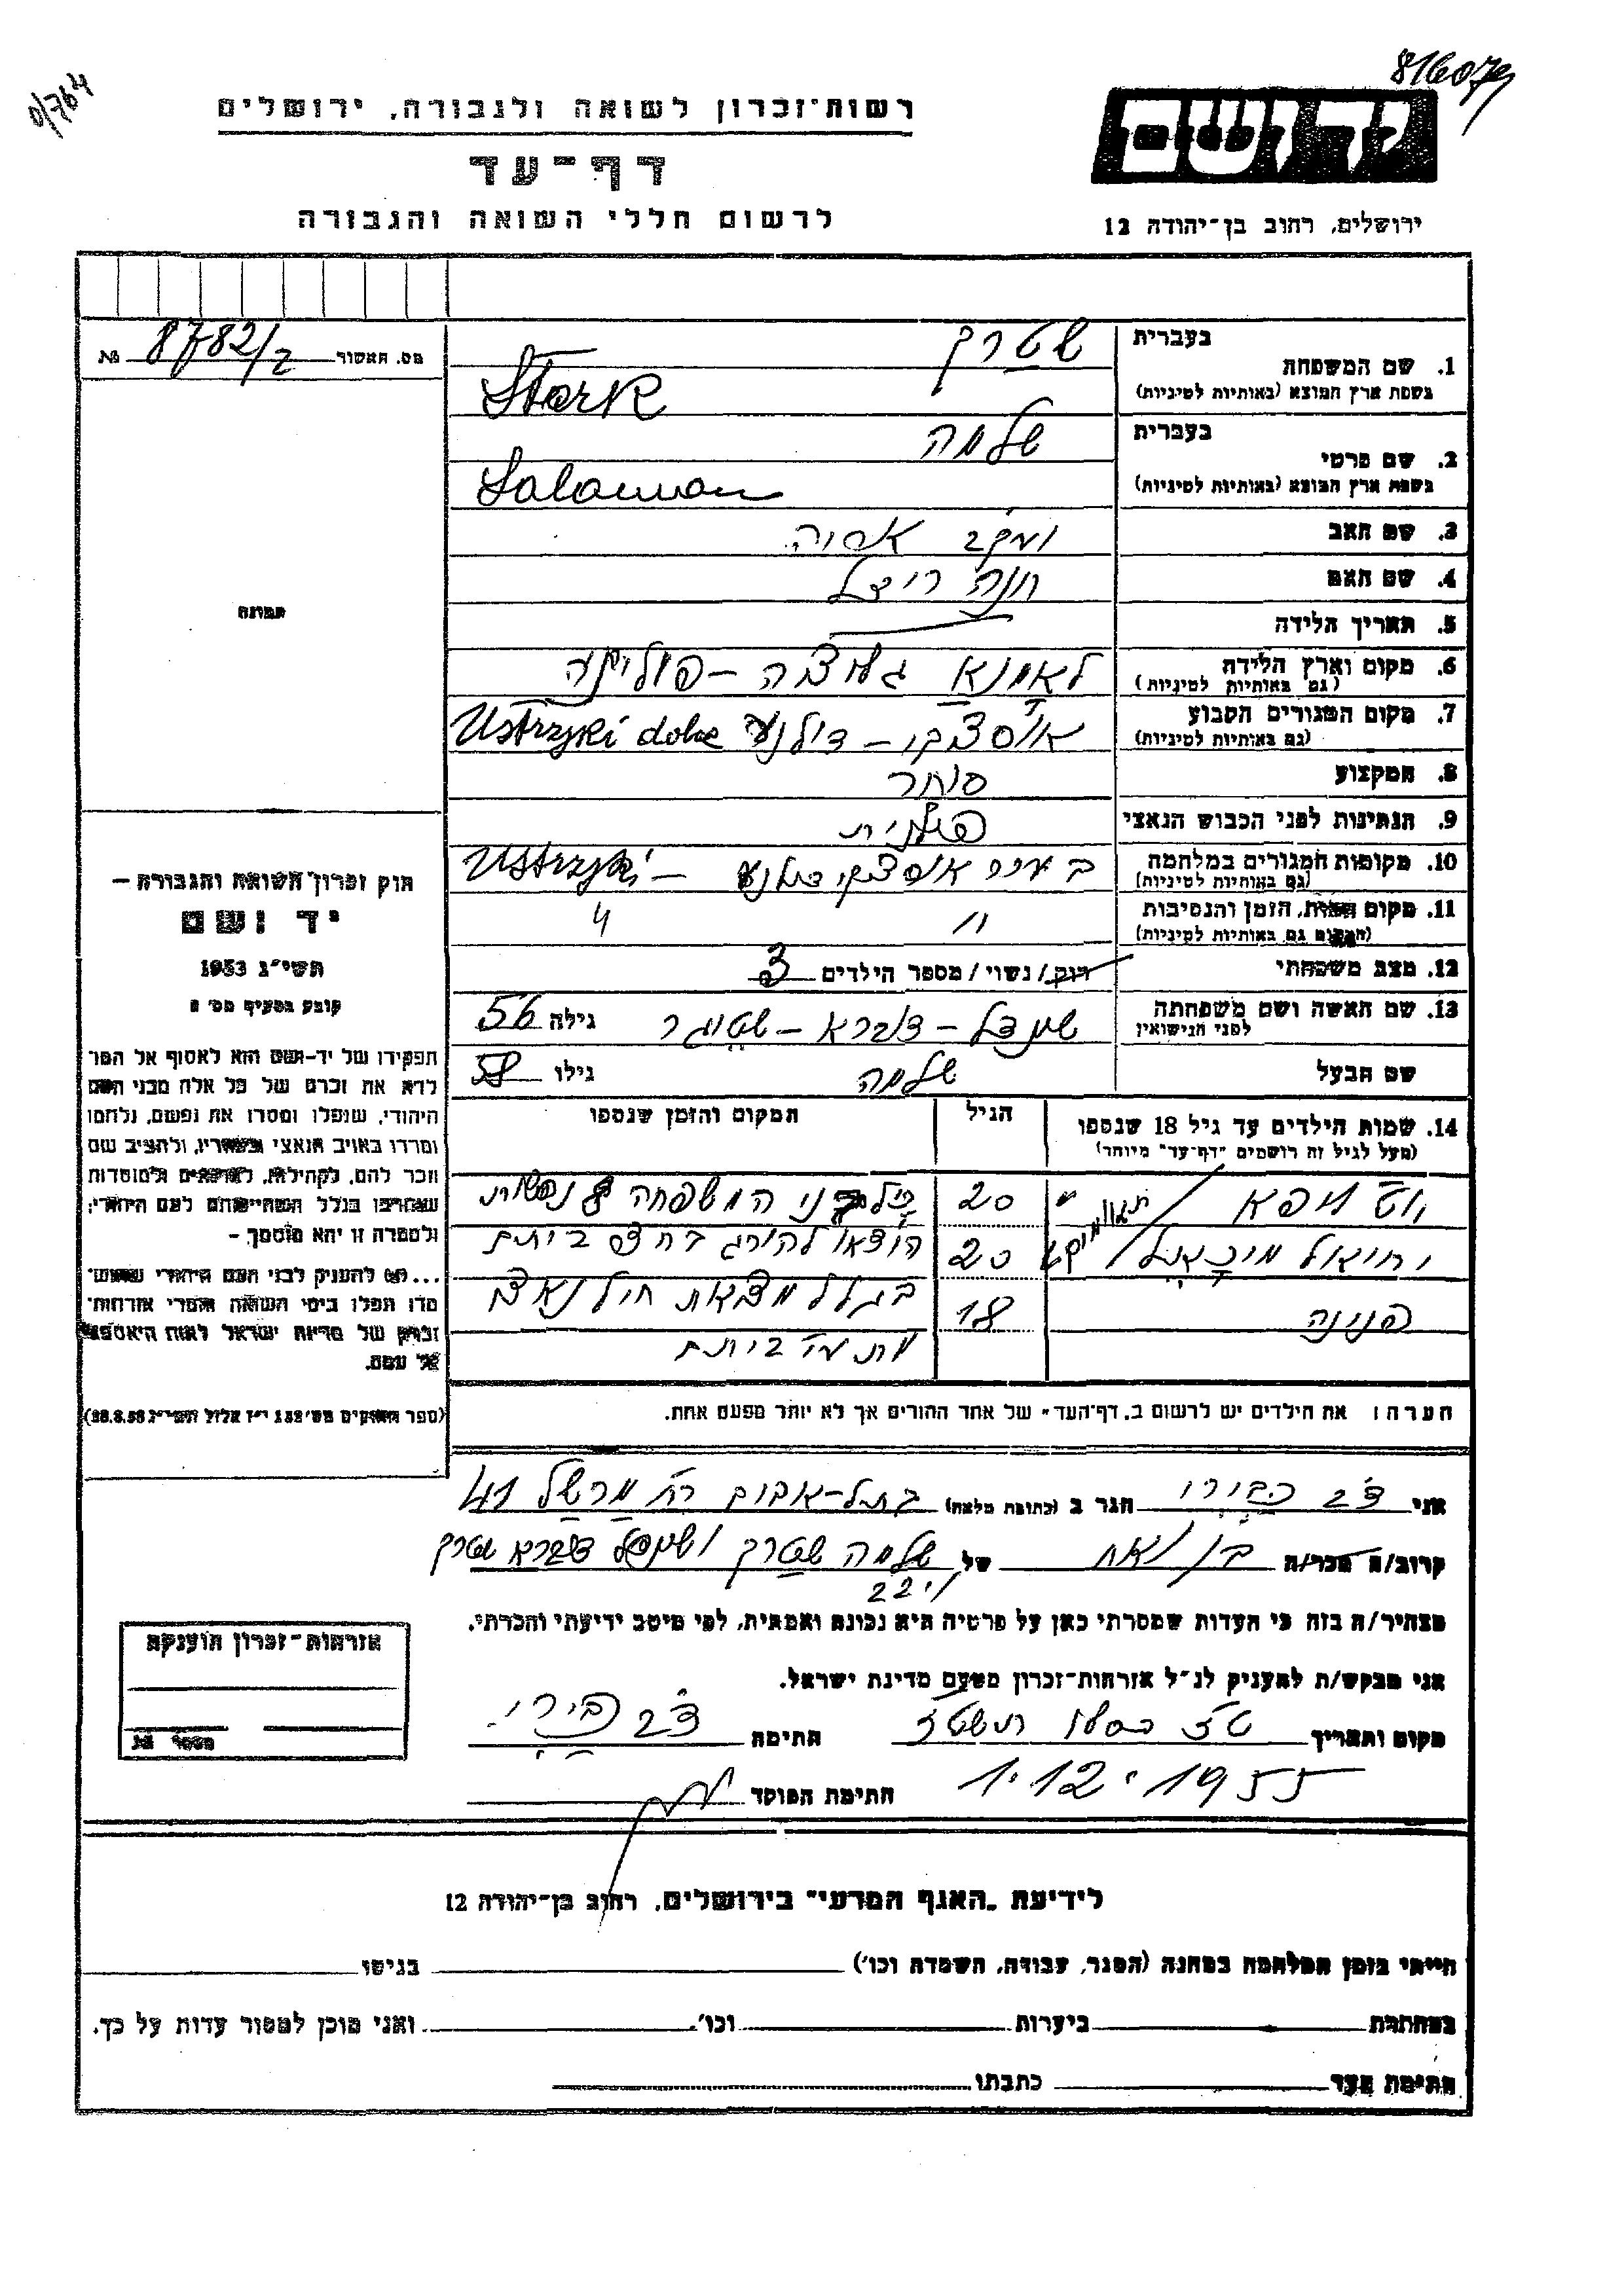 816079
0/764
רשות־זכרון לשואה ולגבורה, ירושלים
דף־עד
לרשום חללי השואה והגבורה
יד ושם
ירושלים, רחוב בן־יהודה 12
מס. האשור 8782/2 №
תמונה
חוק זכרון השואה והגבורה –
יד ושם
תשי"ג 1953
קובע בסעיף מס' 2
תפקידו של יד־ושם הוא לאסוף אל המו־
לדת את זכרם של כל אלה מבני העם
היהודי, שנפלו ומסרו את נפשם, נלחמו
ומרדו באויב הנאצי ובעוזריו, ולהציב שם
וזכר להם, לקהילות, לארגונים ולמוסדות
שנחרבו בגלל השתייכותם לעם היהודי;
ולמטרה זו יהא מוסמך –
...(6) להעניק לבני העם היהודי שהוש־
מדו ונפלו בימי השואה והמרי אזרחות־
זכרון של מדינת ישראל לאות היאספם
אל עמם.
(ספר החוקים מס' 132 י"ז אלול תשי"ג 28.8.53)
1. שם המשפחה בעברית שטרק
בשפת ארץ המוצא (באותיות לטיניות) Stark
2. שם פרטי בעברית שלמה
בשפת ארץ המוצא (באותיות לטיניות) Salamon
3. שם האב יעקב אריה
4. שם האם חנה רייצל
5. תאריך הלידה
6. מקום וארץ הלידה
(גם באותיות לטיניות)
7. מקום המגורים הקבוע
(גם באותיות לטיניות) Ustrzyki dolne
8. המקצוע סוחר
9. הנתינות לפני הכבוש הנאצי פולנית
10. מקומות המגורים במלחמה
(גם באותיות לטיניות) Ustrzyki –
11. מקום המות, הזמן והנסיבות
(המקום גם באותיות לטיניות) " "
12. מצב משפחתי רוק/נשוי/מספר הילדים 3
13. שם האשה ושם משפחתה
לפני הנישואין שיינדל – דברא – גילה 56
שם הבעל שלמה גילו 58
14. שמות הילדים עד גיל 18 שנספו הגיל המקום והזמן שנספו
(מעל לגיל זה רושמים "דף־עד" מיוחד)
20 כל בני המשפחה נפשות
יחיאל מיכאל 20 הוצאו להורג בחצר ביתם
פנינה 18 בגלל מציאת חיל נאצי
מת מביתם
הערה: את הילדים יש לרשום ב"דף־העד" של אחד ההורים אך לא יותר מפעם אחת.
אני צבי הגר ב (כתובת מלאה) בתל-אביב רח' 41
קרוב/ה מכר/ה בן אח של שלמה שטרק ושיינדל דברא שטרק
מצהיר/ה בזה כי העדות שמסרתי כאן על פרטיה היא נכונה ואמתית, לפי מיטב ידיעתי והכרתי.
אני מבקש/ת להעניק לנ"ל אזרחות־זכרון מטעם מדינת ישראל.
מקום ותאריך ט"ז כסלו תשט"ז חתימה צבי
1.12.1955 חתימת הפוקד
אזרחות־זכרון הוענקה
מספר №
לידיעת "האגף המדעי" בירושלים, רחוב בן־יהודה 12
הייתי בזמן המלחמה במחנה (הסגר, עבודה, השמדה וכו') בגיטו
במחתרת ביערות וכו'. ואני מוכן למסור עדות על כך.
חתימת העד כתבתו